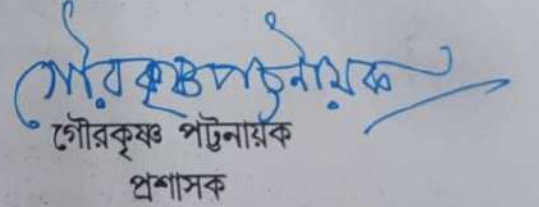 গৌরকৃষ্ণ পট্টনায়ক
গৌরকৃষ্ণ পট্টনায়ক
প্রশাসক